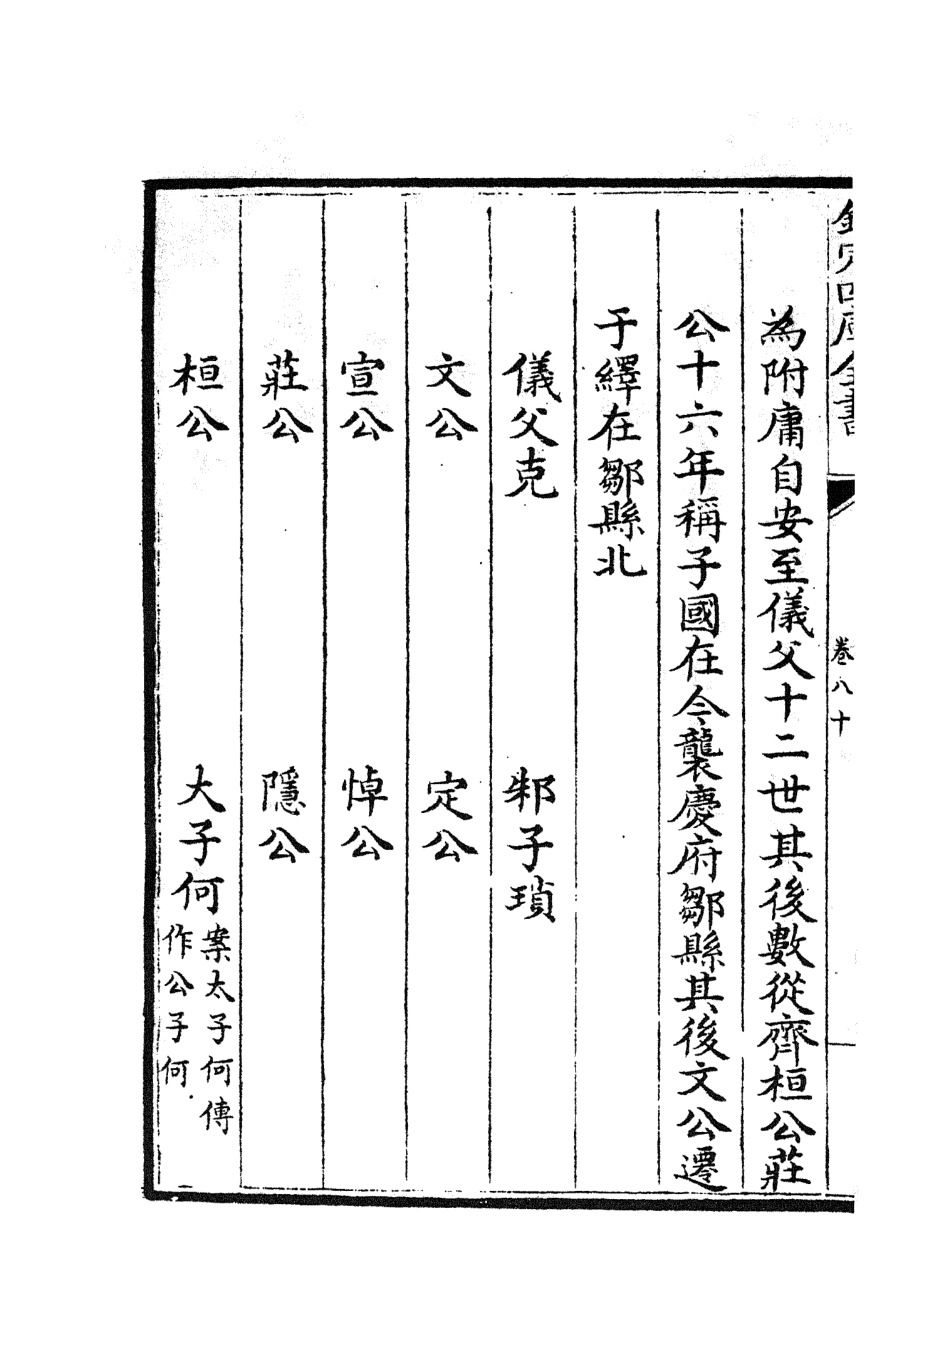 欽定四庫全書
卷八十
為附庸自安至儀父十二世其後數從齊桓公莊
公十六年稱子國在今襲慶府鄒縣其後文公遷
于繹在鄒縣北
儀父克　邾子瑣
文公　定公
宣公　悼公
莊公　隱公
桓公　大子何案太子何傳
作公子何